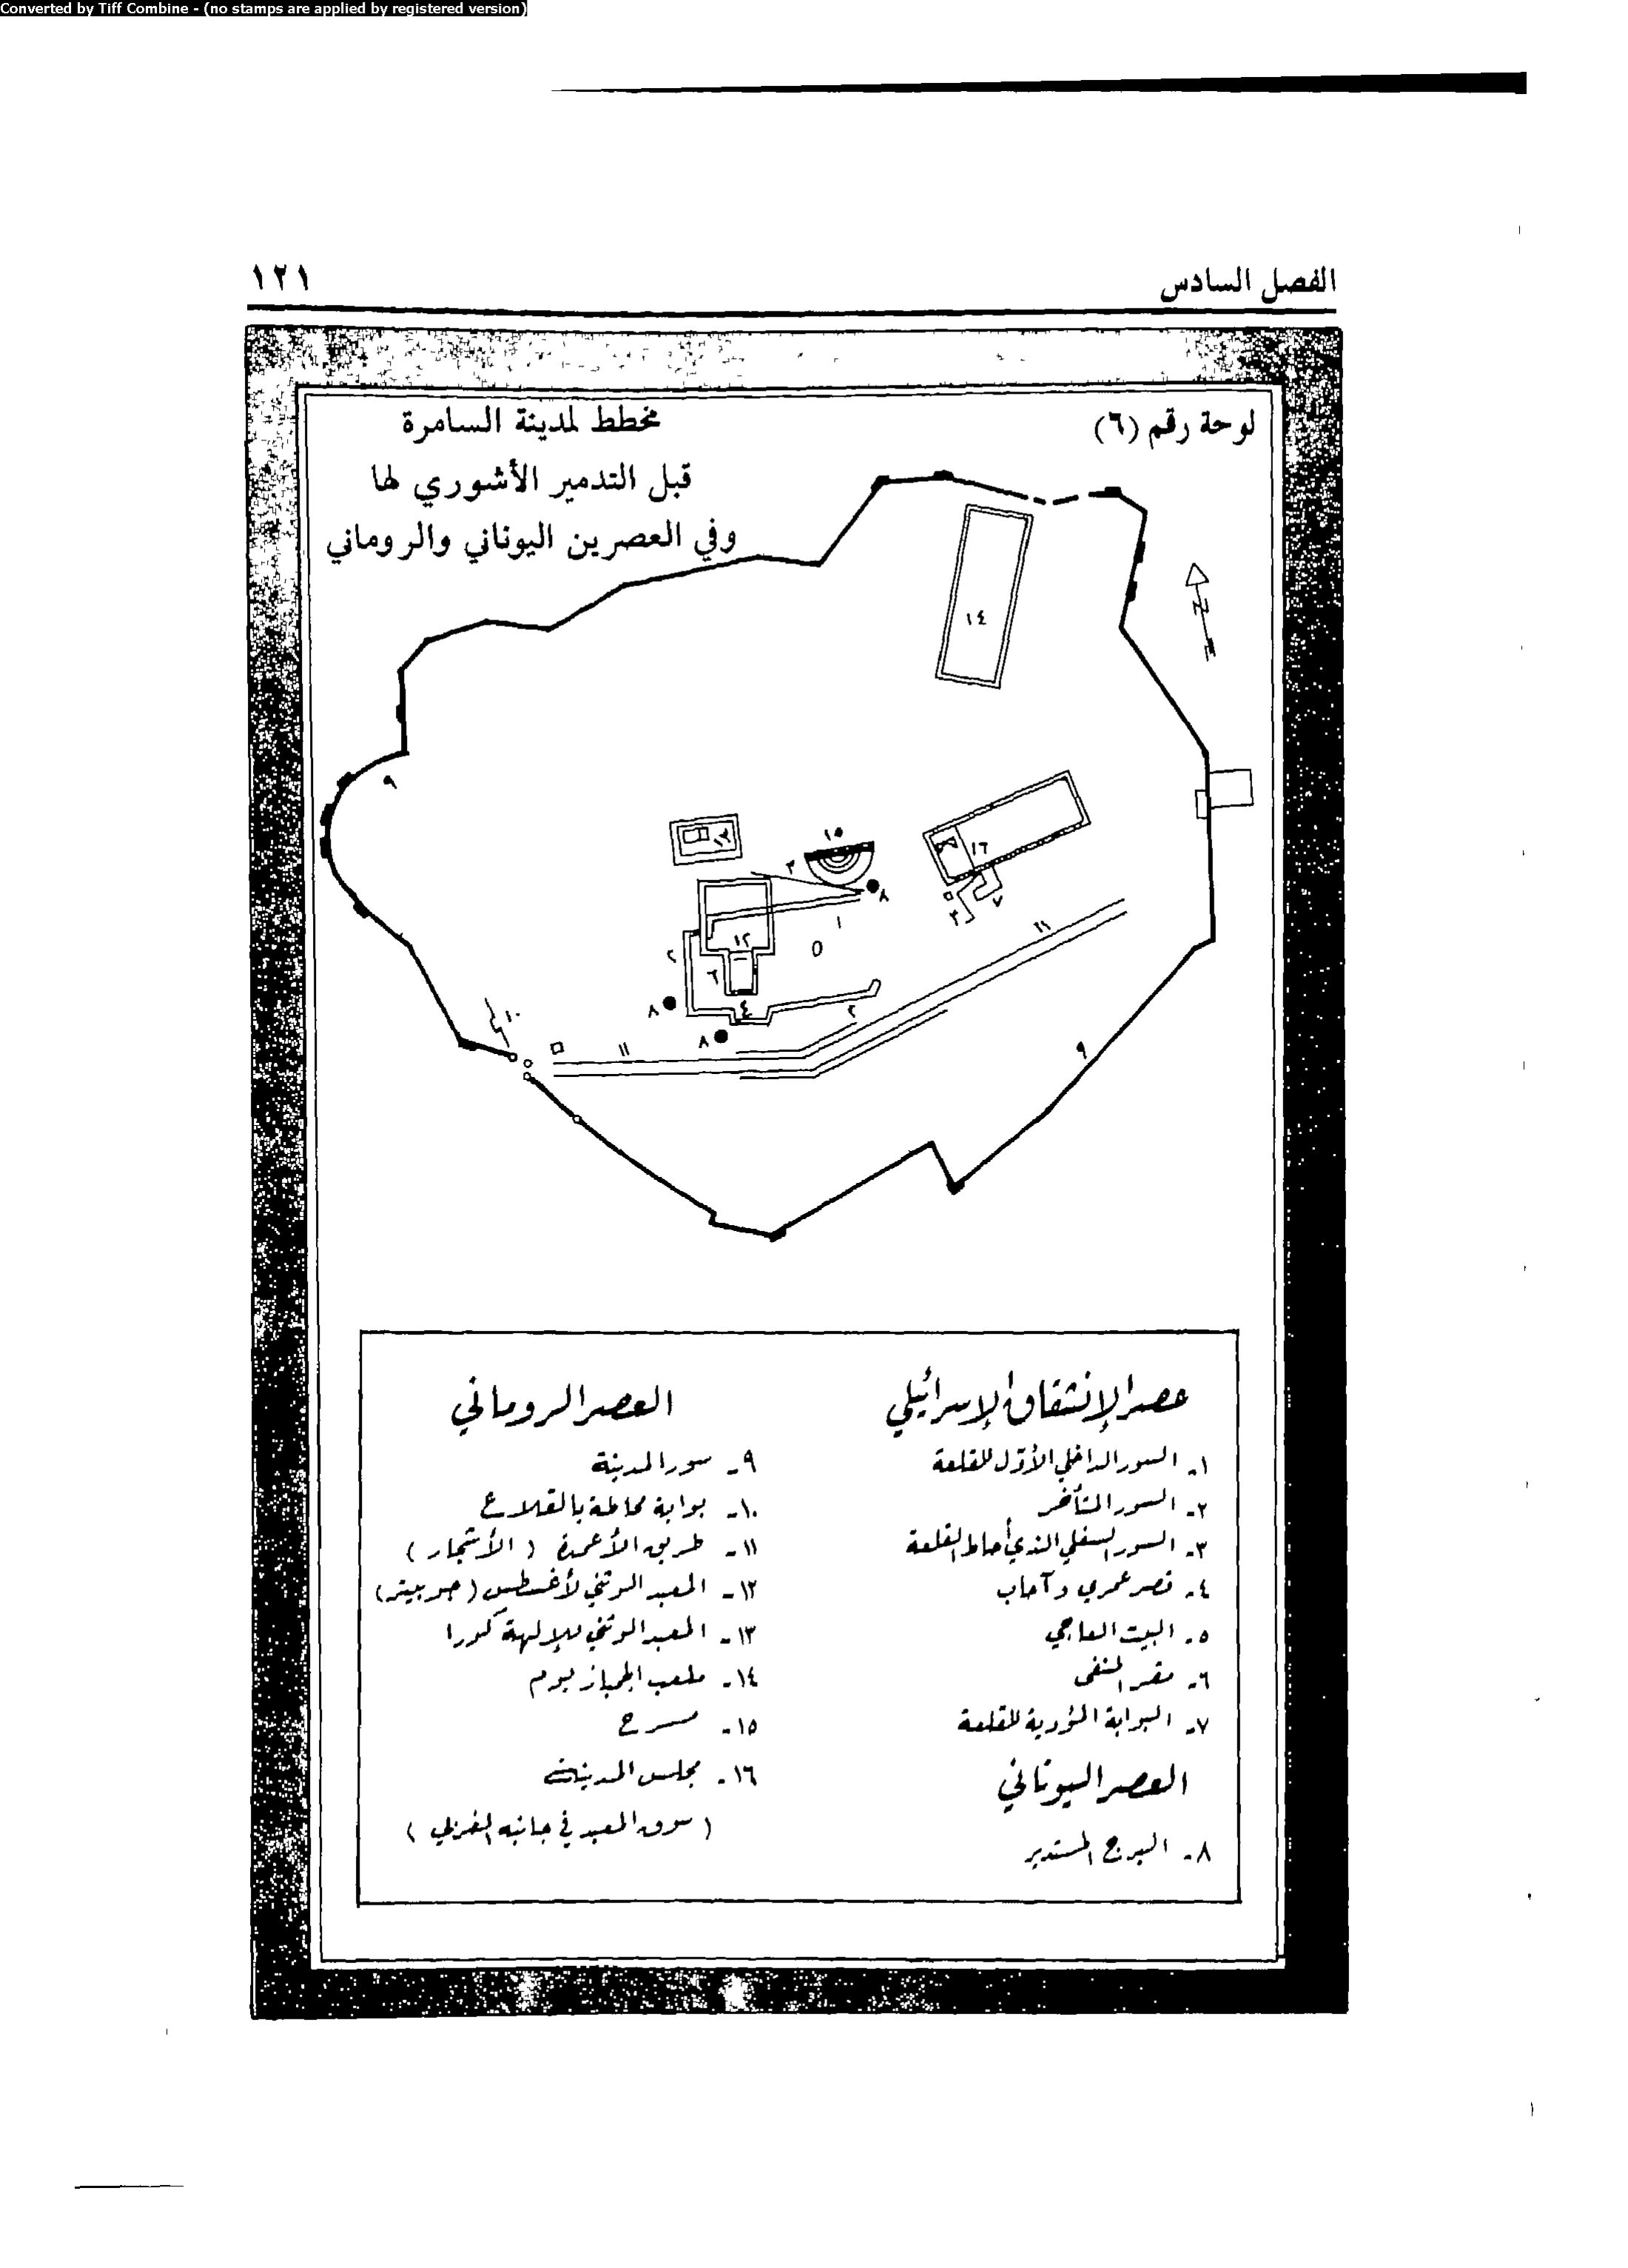 Converted by Tiff Combine - (no stamps are applied by registered version)
الفصل السادس
١٢١
لوحة رقم (٦)
مخطط لمدينة السامرة
قبل التدمير الأشوري لها
وفي العصرين اليوناني والروماني
١٤
N
٩
١٣
١٥
٣
٨
١٦
٧
٣
١١
١
٥
١٢
٢
٦
٤
٢
٨
٨
١٠
١١
٩
عصر الإنشقاق الإسرائيلي
١- السور الداخلي الأوّل للقلعة
٢- السور المتأخر
٣- السور السفلي الذي أحاط القلعة
٤- قصر عمري وآحاب
٥- البيت العاجي
٦- مقر المنفى
٧- البوابة المؤدية للقلعة
العصر اليوناني
٨- البرج المستدير
العصر الروماني
٩- سور المدينة
١٠- بوابة محاطة بالقلاع
١١- طريق الأعمدة ( الأشجار )
١٢- المعبد الوثني لأغسطس (جوبيتر)
١٣- المعبد الوثني للإلهة كورا
١٤- ملعب الجمبازيوم
١٥- مسرح
١٦- مجلس المدينة
( سوق المعبد في جانبه الغربي )